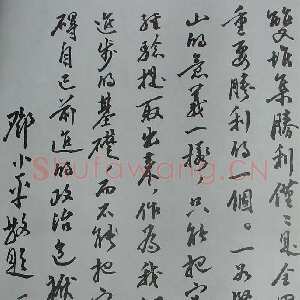 雙堆集勝利僅僅是全
重要勝利的一個。一
山的意義一樣，只能把
經驗提取出來作為我
進步的基礎而不能把
礙自己前進的政治包袱
鄧小平敬題
Shufawang.CN